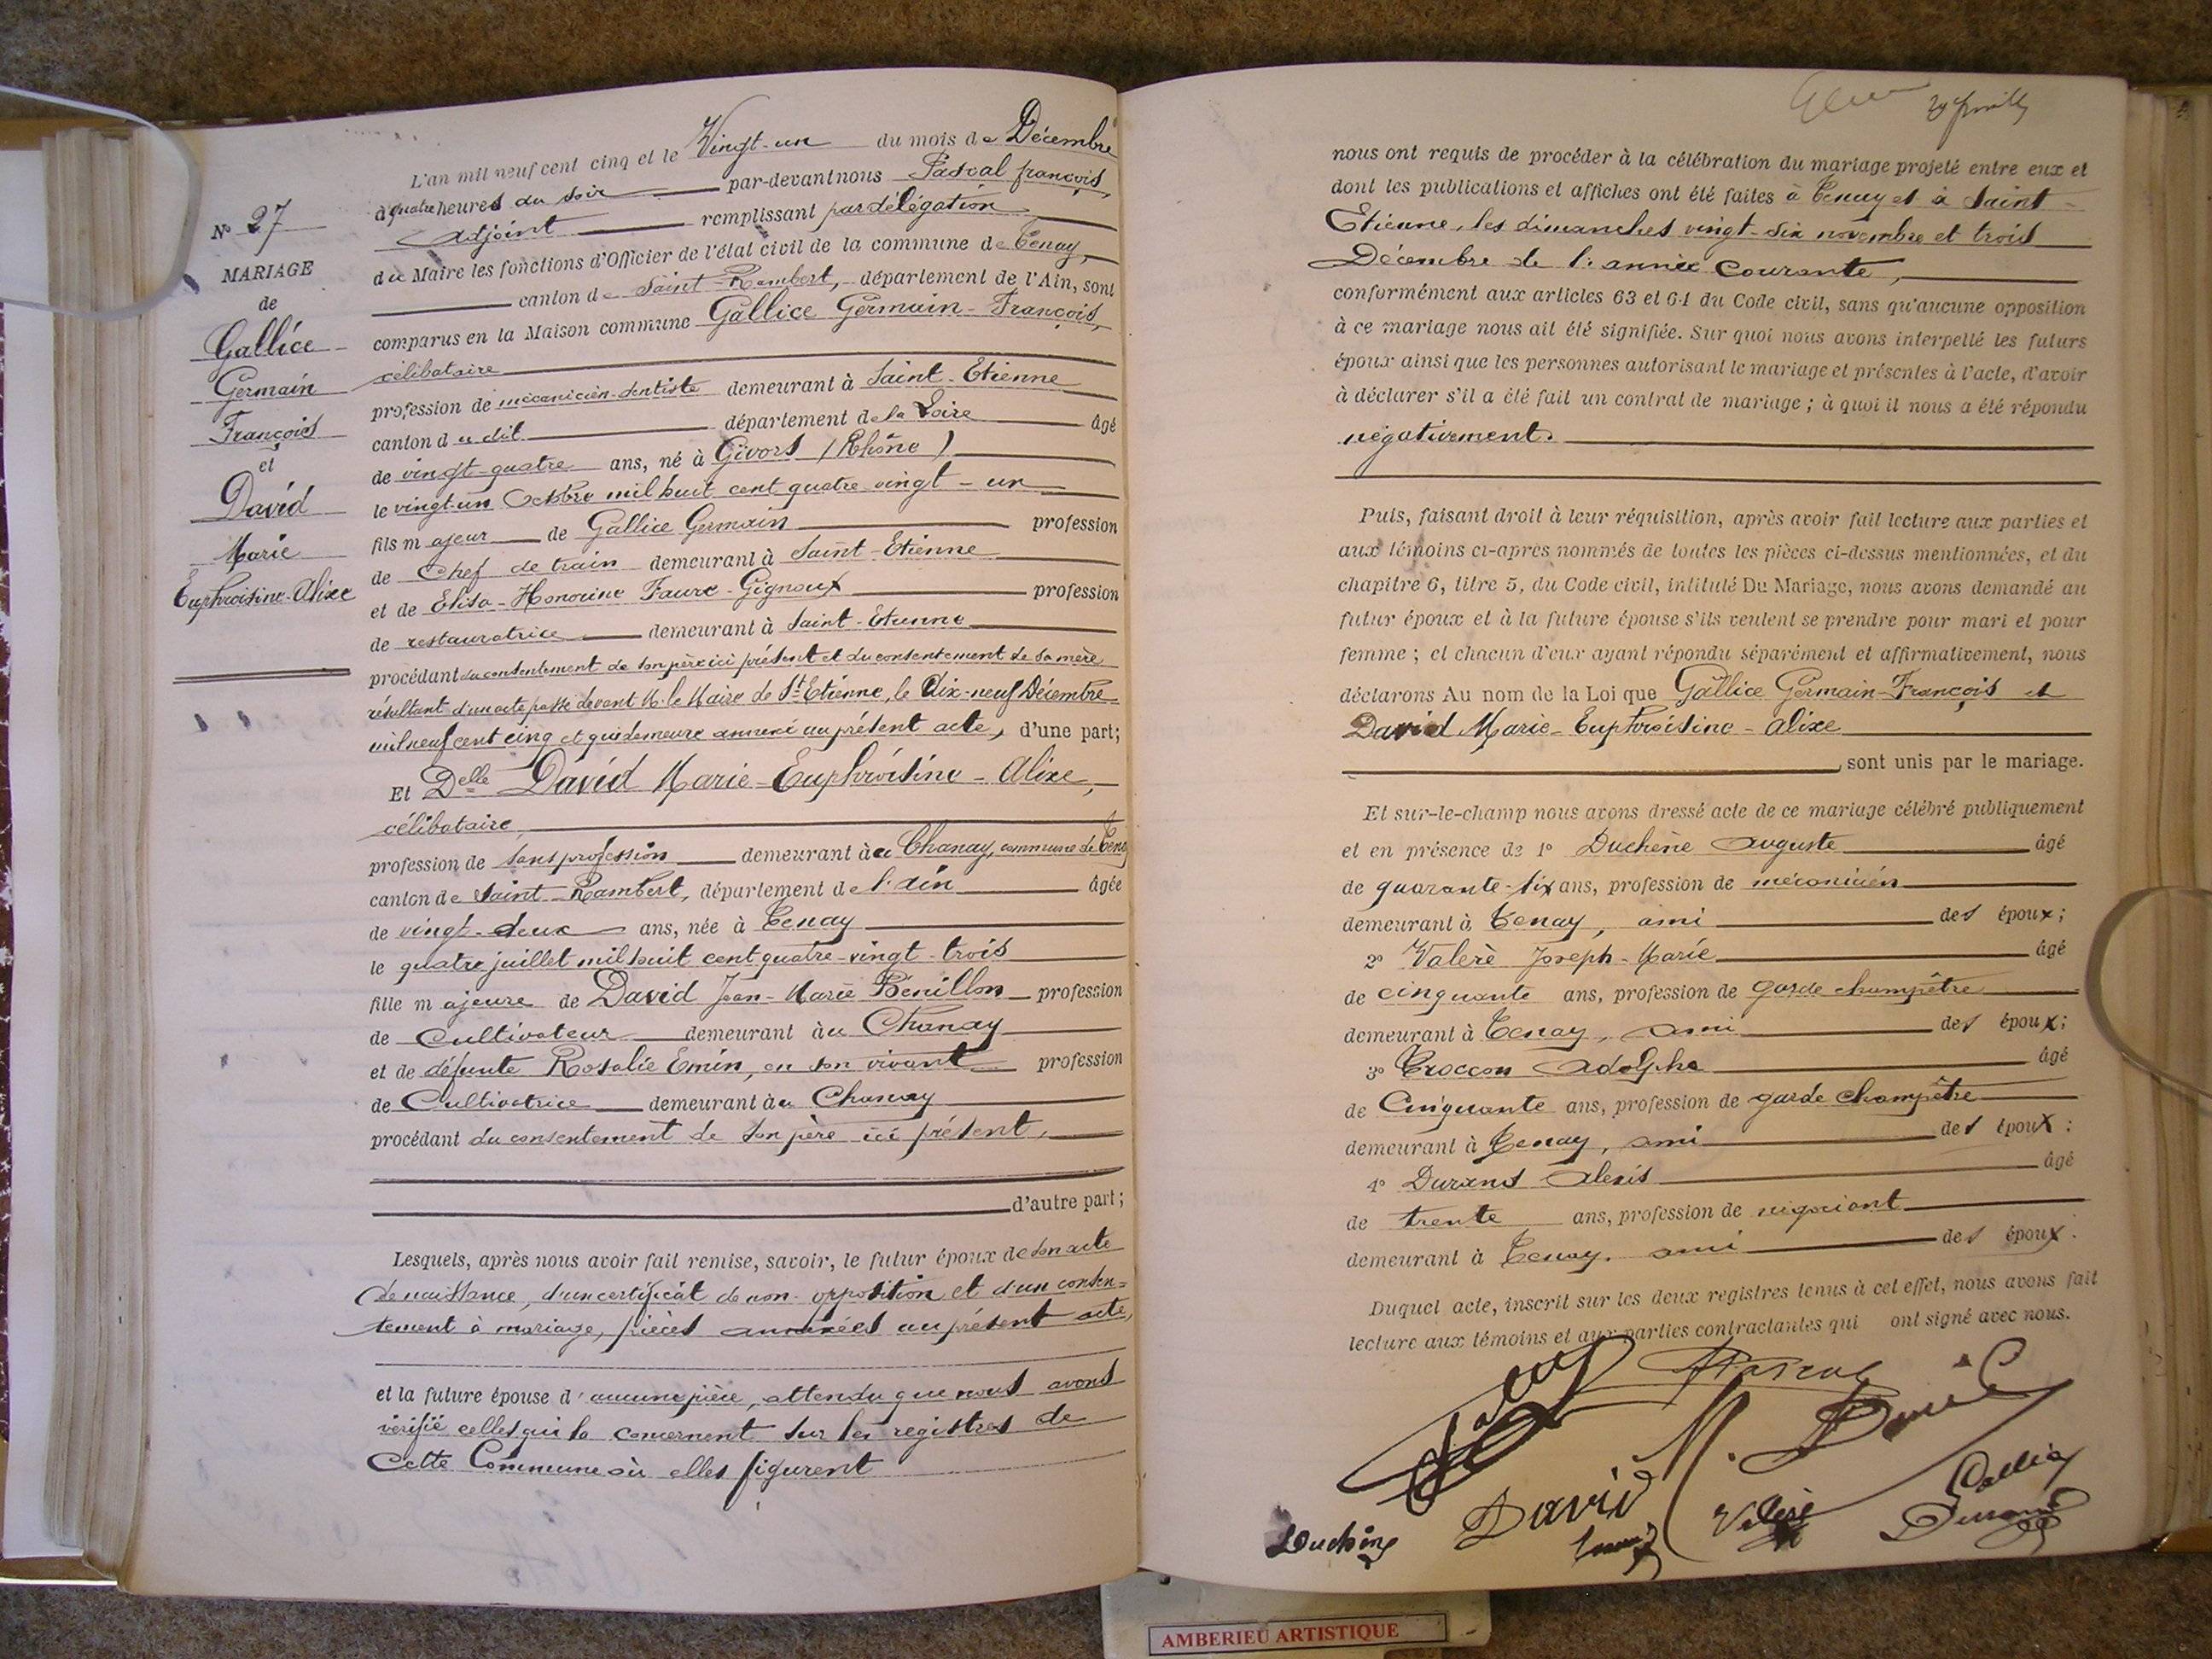 N° 27
MARIAGE
de
Gallice
Germain
François
et
David
Marie
Euphroisine-Alixe
L'an mil neuf cent cinq et le Vingt-un du mois de Décembre
à quatre heures du soir par-devant nous Pascal françois,
Adjoint remplissant par délégation
du Maire les fonctions d'Officier de l'état civil de la commune de Tenay,
canton de Saint-Rambert, département de l'Ain, sont
comparus en la Maison commune Gallice Germain-François,
célibataire
profession de mécanicien-dentiste demeurant à Saint-Etienne
canton du dit département de la Loire âgé
de vingt-quatre ans, né à Givors (Rhône)
le vingt-un Octobre mil huit cent quatre-vingt-un
fils majeur de Gallice Germain profession
de Chef de train demeurant à Saint-Etienne
et de Elisa-Honorine Faure-Gignoux profession
de restauratrice demeurant à Saint-Etienne
procédant du consentement de son père ici présent et du consentement de sa mère
résultant d'un acte passé devant M. le Maire de St-Etienne, le Dix-neuf Décembre
mil neuf cent cinq et qui demeure annexé au présent acte, d'une part;
Et Delle David Marie-Euphroisine-Alixe,
célibataire
profession de sans profession demeurant à au Chanay, commune de Tenay
canton de Saint-Rambert, département de l'Ain âgée
de vingt-deux ans, née à Tenay
le quatre juillet mil huit cent quatre-vingt-trois
fille majeure de David Jean-Marie Benillon profession
de Cultivateur demeurant au Chanay
et de défunte Rosalie Emin, en son vivant profession
de Cultivatrice demeurant au Chanay
procédant du consentement de son père ici présent,
d'autre part;
Lesquels, après nous avoir fait remise, savoir, le futur époux de son acte
de naissance, d'un certificat de non-opposition et d'un consen=
tement à mariage, pièces annexées au présent acte,
et la future épouse d'aucune pièce, attendu que nous avons
vérifié celles qui la concernent sur les registres de
cette Commune où elles figurent
nous ont requis de procéder à la célébration du mariage projeté entre eux et
dont les publications et affiches ont été faites à Tenay et à Saint-
Etienne, les dimanches vingt-six novembre et trois
Décembre de l'année courante,
conformément aux articles 63 et 64 du Code civil, sans qu'aucune opposition
à ce mariage nous ait été signifiée. Sur quoi nous avons interpellé les futurs
époux ainsi que les personnes autorisant le mariage et présentes à l'acte, d'avoir
à déclarer s'il a été fait un contrat de mariage; à quoi il nous a été répondu
négativement.
Puis, faisant droit à leur réquisition, après avoir fait lecture aux parties et
aux témoins ci-après nommés de toutes les pièces ci-dessus mentionnées, et du
chapitre 6, titre 5, du Code civil, intitulé Du Mariage, nous avons demandé au
futur époux et à la future épouse s'ils veulent se prendre pour mari et pour
femme; et chacun d'eux ayant répondu séparément et affirmativement, nous
déclarons Au nom de la Loi que Gallice Germain-François et
David Marie-Euphroisine-Alixe
sont unis par le mariage.
Et sur-le-champ nous avons dressé acte de ce mariage célébré publiquement
et en présence de 1° Duchêne Auguste âgé
de quarante-six ans, profession de mécanicien
demeurant à Tenay, ami des époux;
2° Valeré Joseph-Marie âgé
de cinquante ans, profession de garde champêtre
demeurant à Tenay, ami des époux;
3° Troccon Adolphe âgé
de Cinquante ans, profession de garde champêtre
demeurant à Tenay, ami des époux;
4° Durand Alexis âgé
de trente ans, profession de négociant
demeurant à Tenay, ami des époux.
Duquel acte, inscrit sur les deux registres tenus à cet effet, nous avons fait
lecture aux témoins et aux parties contractantes qui ont signé avec nous.
Pascal
M. David
David
Gallice
Duchêne
Valeré
Durand
AMBERIEU ARTISTIQUE